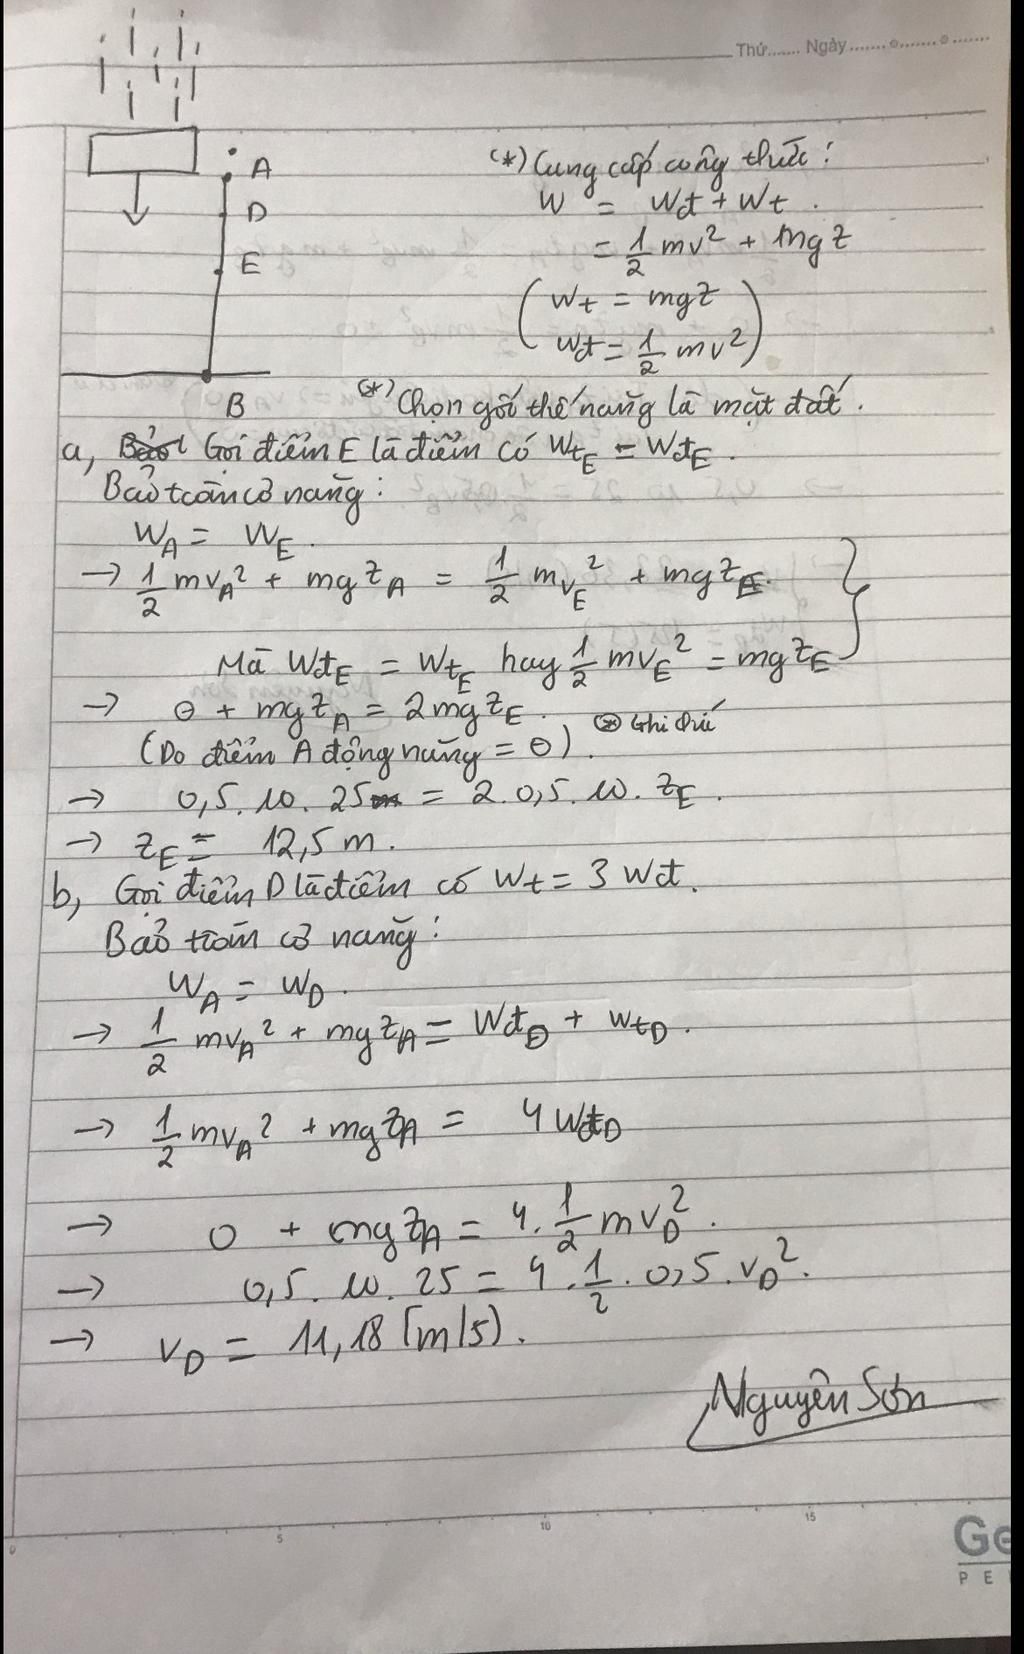 Thứ....... Ngày.......o.......o.......
A
D
E
B
(*) Cung cấp công thức:
W = Wđ + Wt.
= 1/2 mv² + mgz
(Wt = mgz
Wđ = 1/2 mv²)
(*) Chọn gốc thế năng là mặt đất.
a, Gọi điểm E là điểm có WtE = WđE.
Bảo toàn cơ năng:
WA = WE.
→ 1/2 mvA² + mgzA = 1/2 mvE² + mgzE.
Mà WđE = WtE hay 1/2 mvE² = mgzE
→ 0 + mgzA = 2mgzE.
(Do điểm A động năng = 0). (*) Ghi chú
→ 0,5. 10. 25 = 2. 0,5. 10. zE.
→ zE = 12,5 m.
b, Gọi điểm D là điểm có Wt = 3 Wđ.
Bảo toàn cơ năng:
WA = WD.
→ 1/2 mvA² + mgzA = WđD + WtD.
→ 1/2 mvA² + mgzA = 4WđD
→ 0 + mgzA = 4. 1/2 mvD².
→ 0,5. 10. 25 = 4. 1/2. 0,5. vD².
→ vD = 11,18 (m/s).
Nguyên Sơn
0 5 10 15
Ge
PE